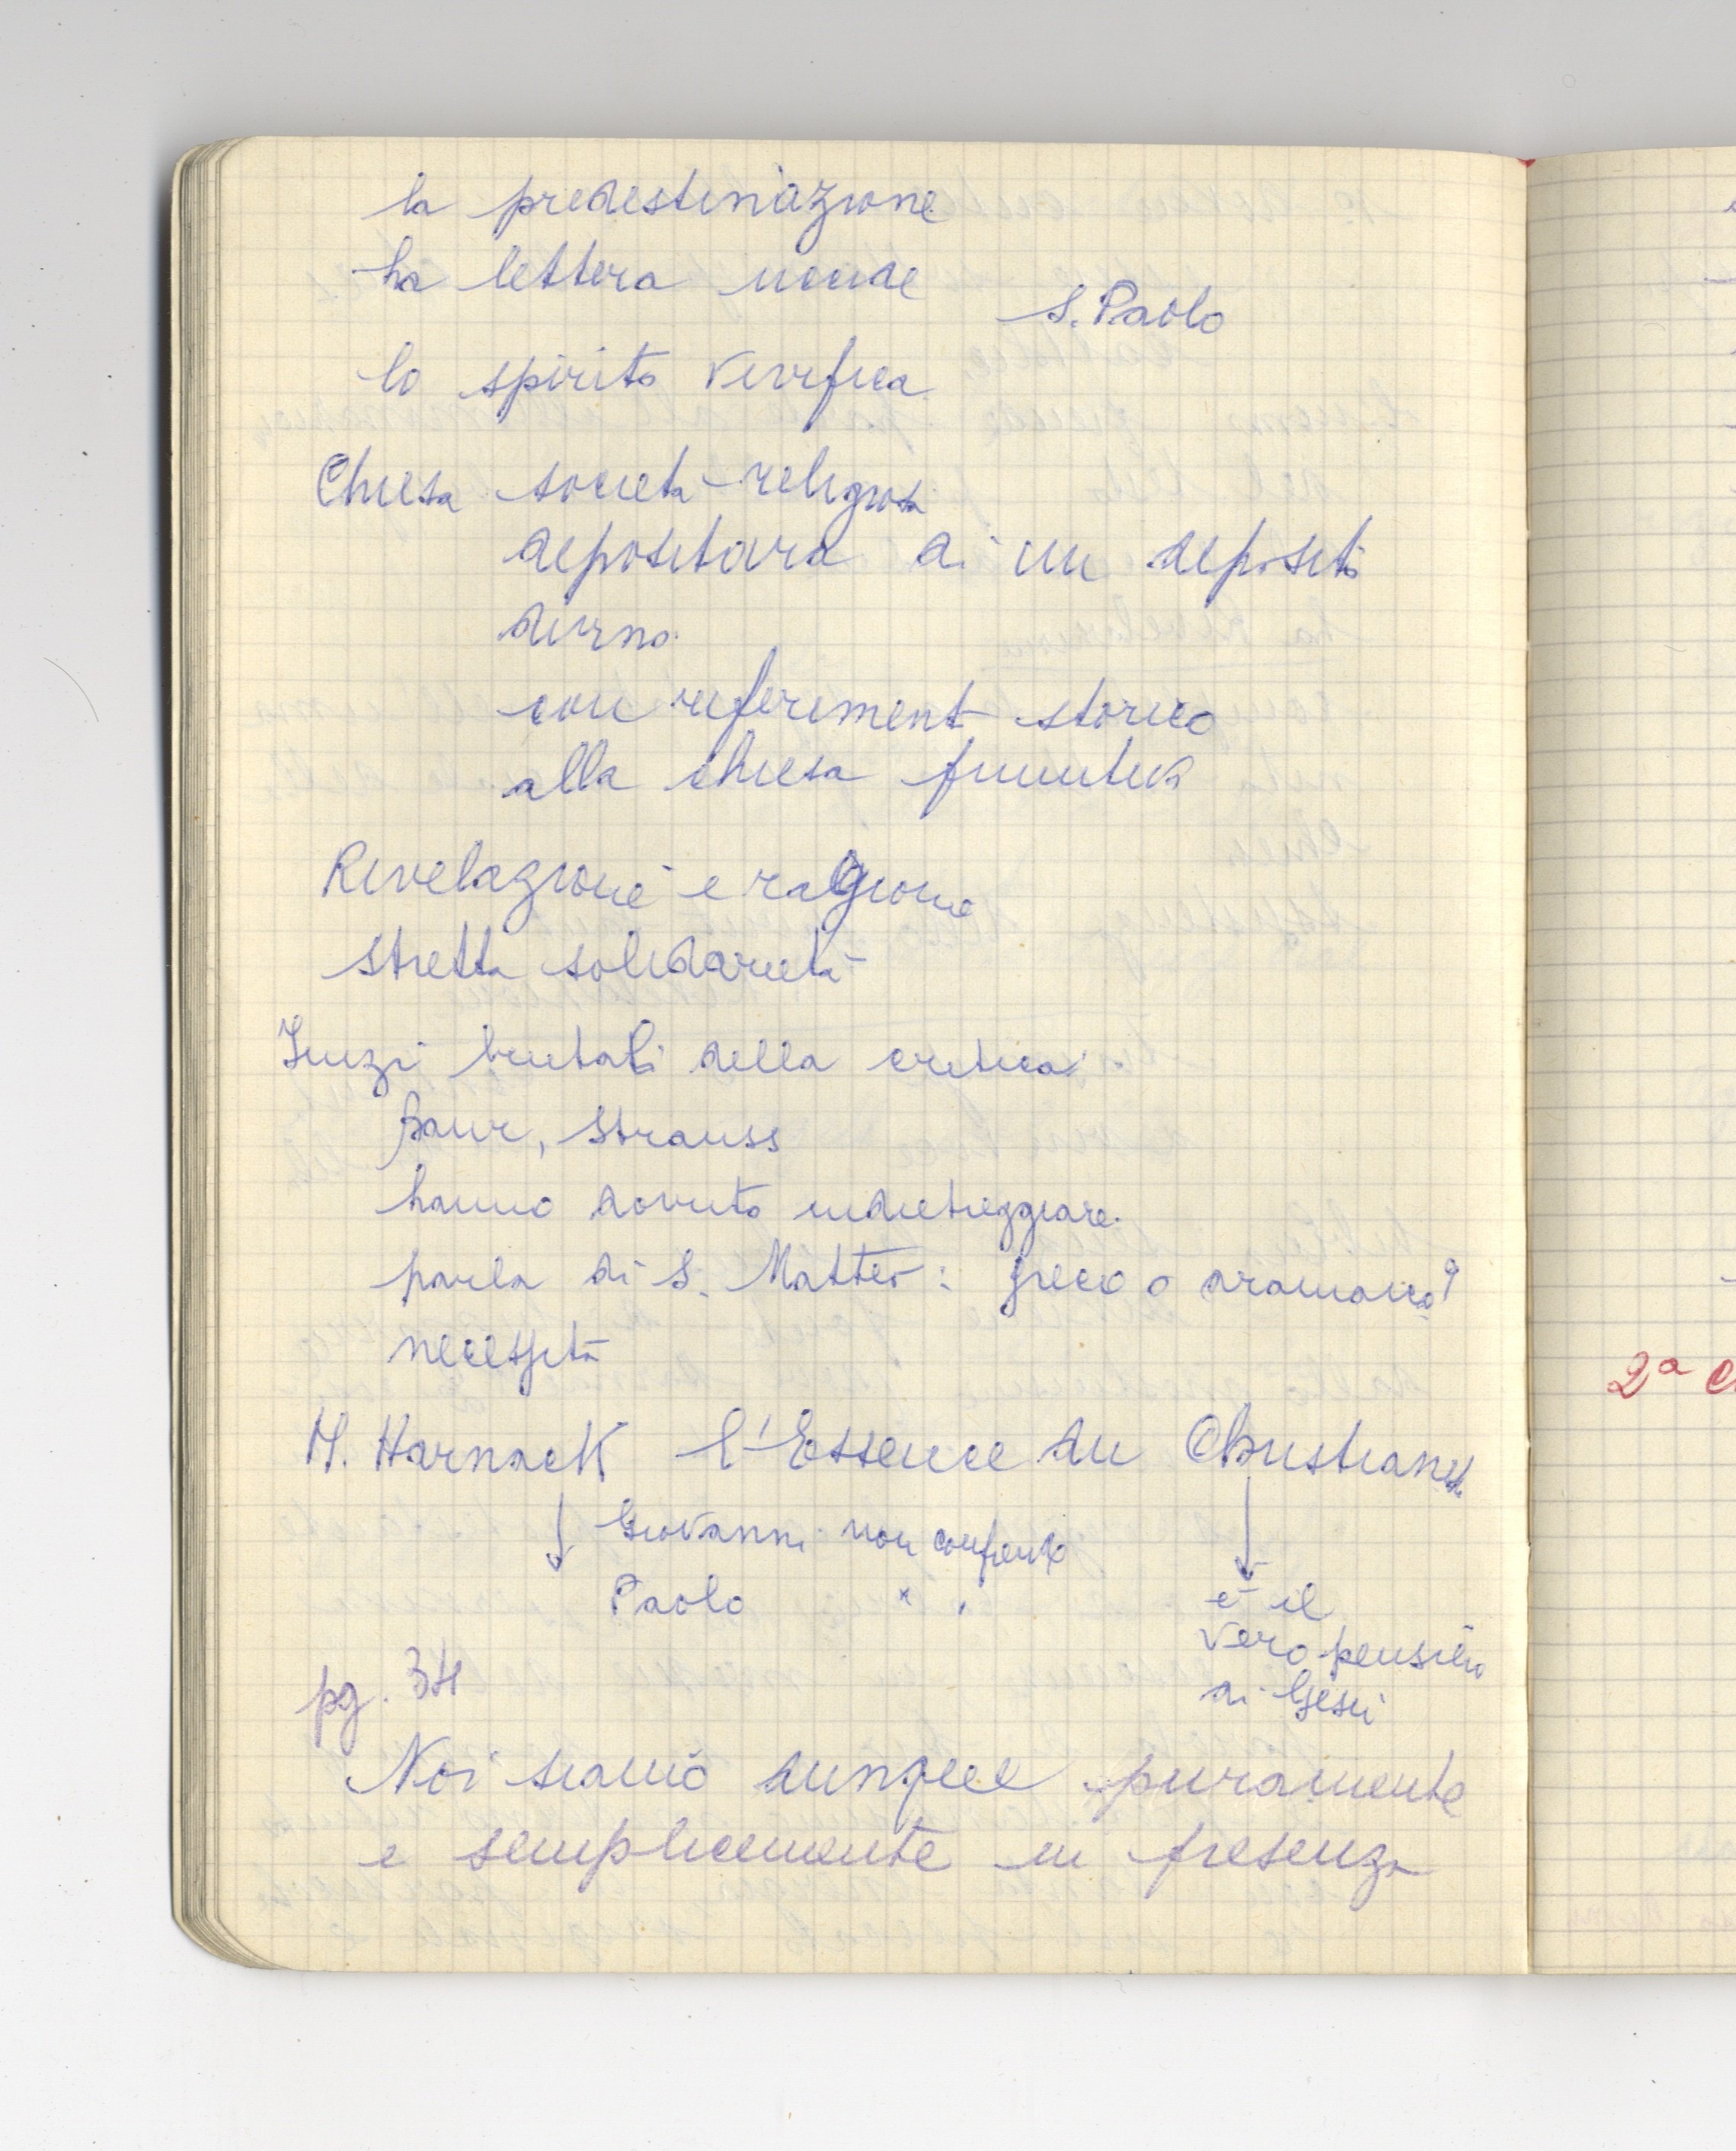 la predestinazione
la lettera uccide
S. Paolo
lo spirito vivifica
Chiesa società religiosa
depositaria di un deposito
divino
con riferimento storico
alla chiesa primitiva
Rivelazione e ragione
stretta solidarietà
Inizi brutali della critica.
Baur, Strauss
hanno dovuto indietreggiare.
parla di S. Matteo: greco o aramaico?
necessità
H. Harnack l'Essence du
Giovanni non
Paolo " "
è il
vero pensiero
di Gesù
pg. 34
Noi siamo dunque puramente
e semplicemente in presenza
2ª